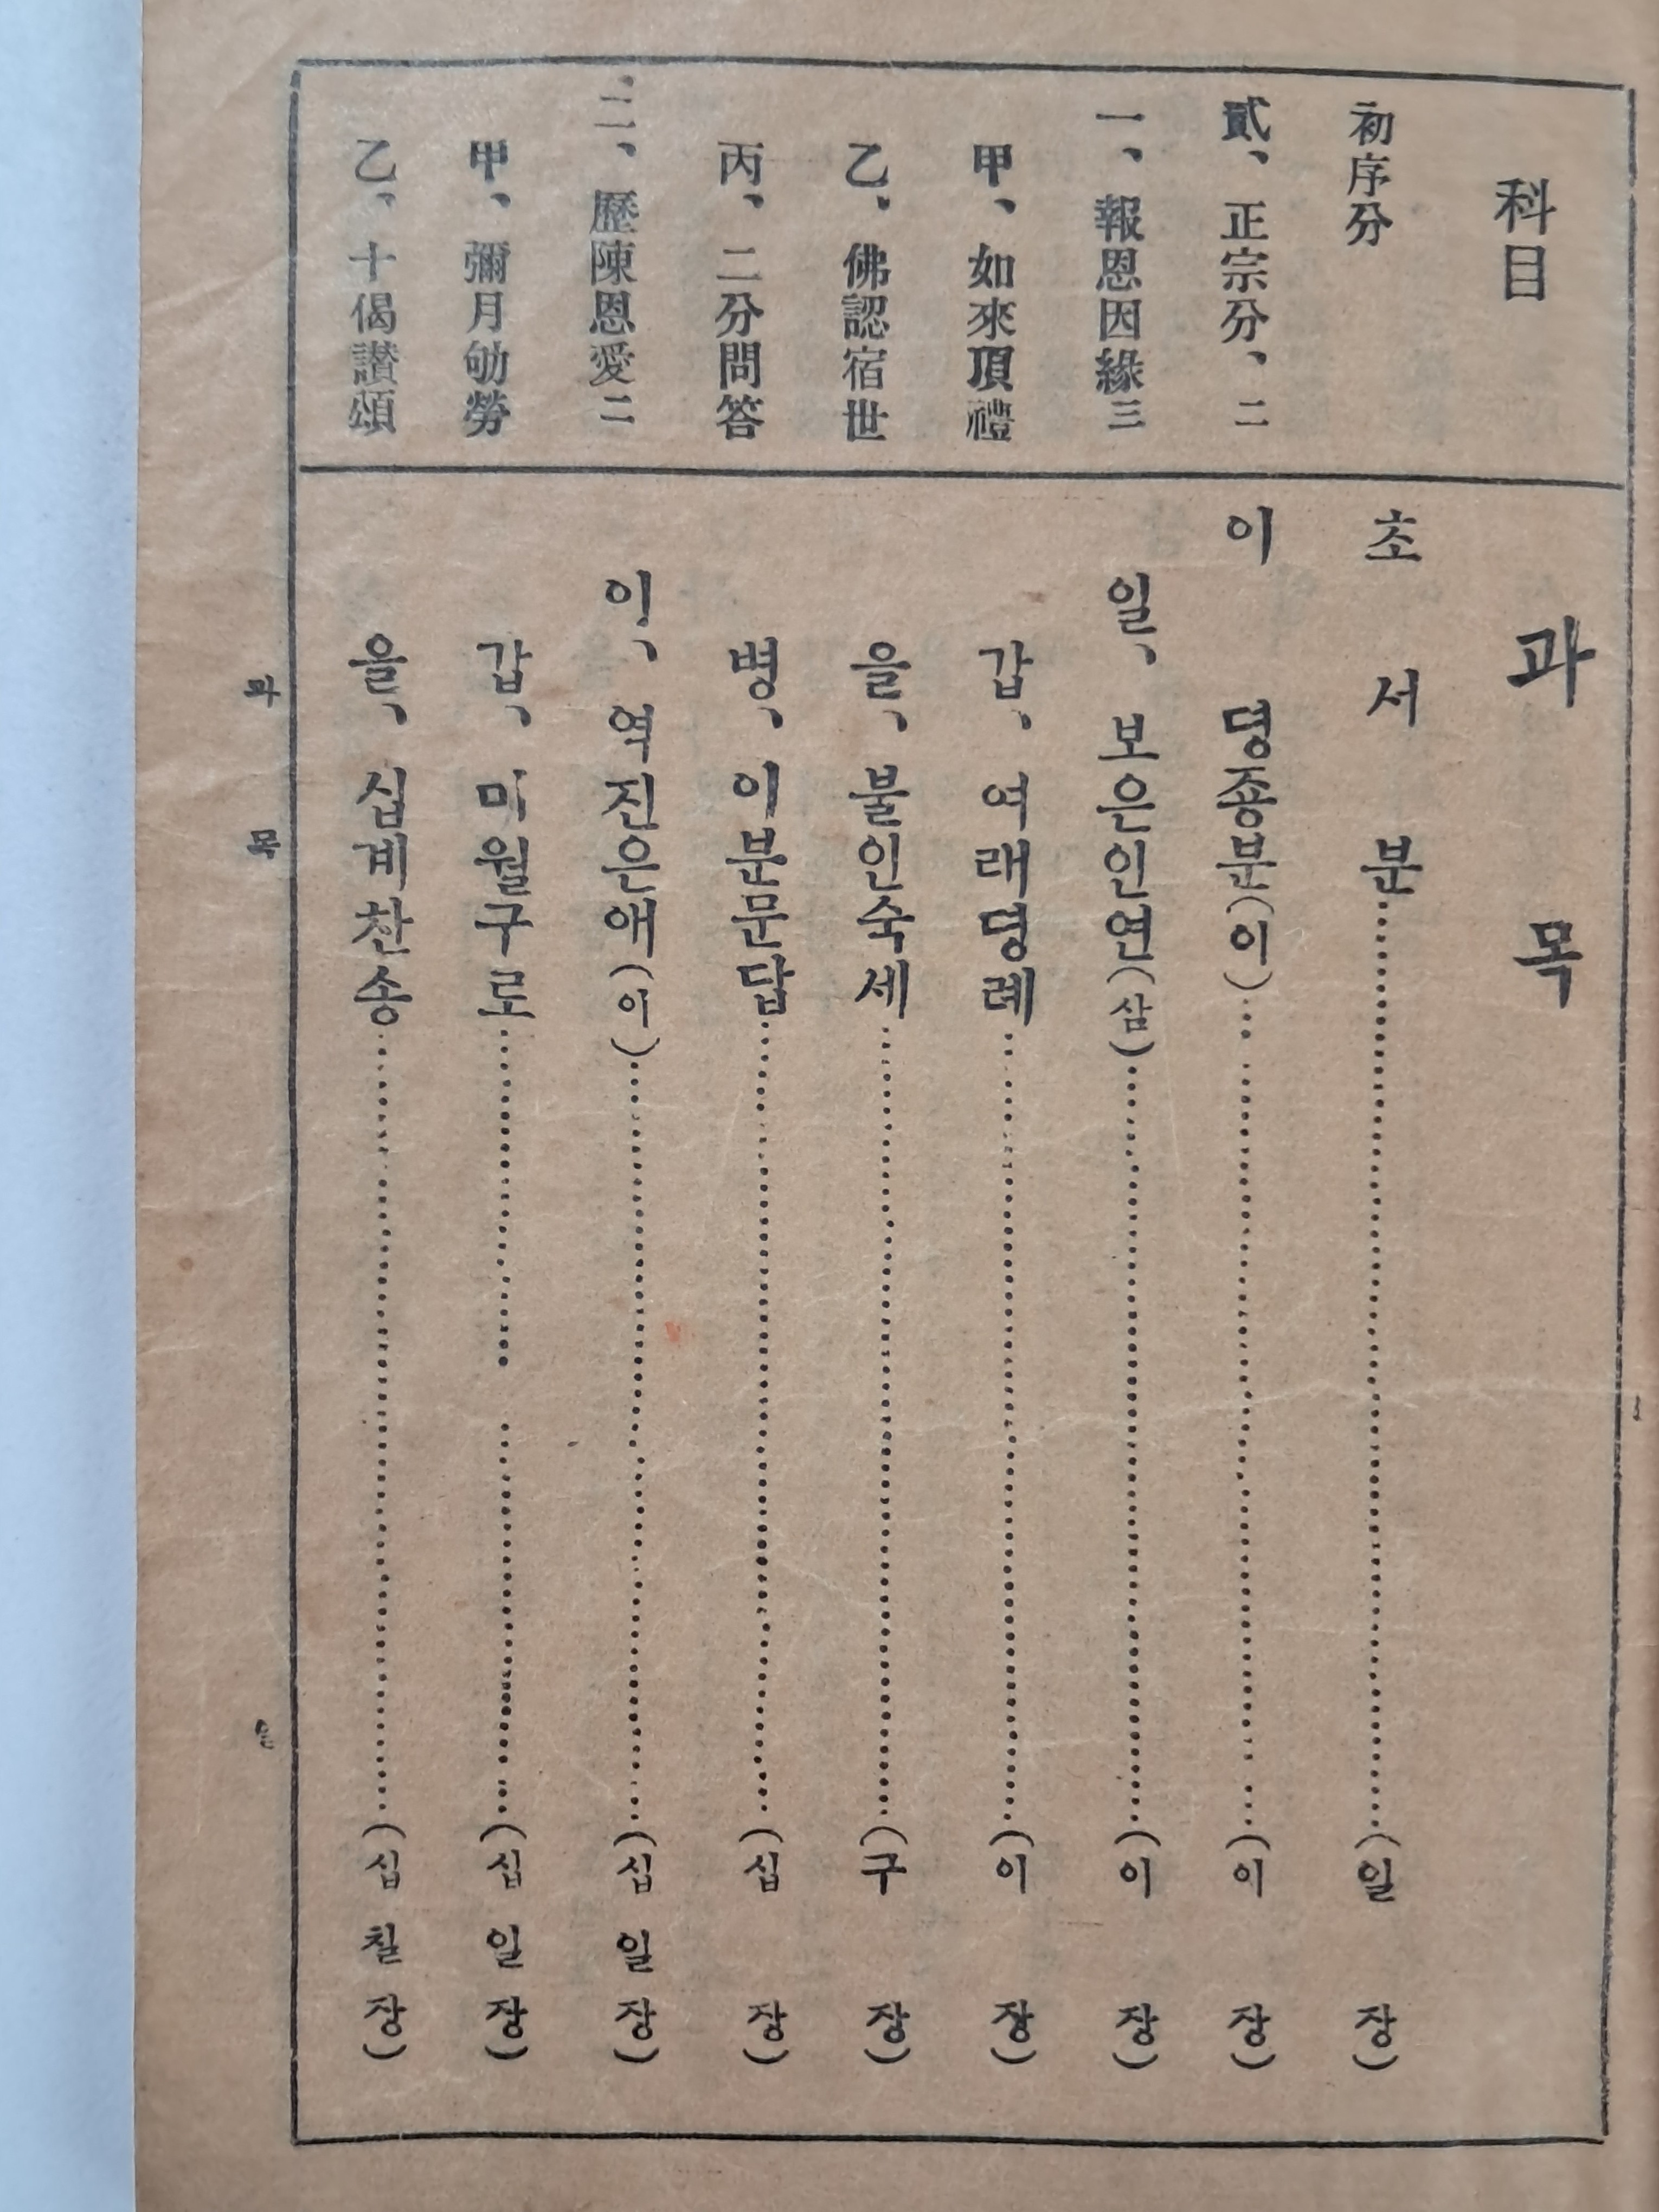 科目
初序分
貳、正宗分、二
一、報恩因緣三
甲、如來頂禮
乙、佛認宿世
丙、二分問答
二、歷陳恩愛二
甲、彌月劬勞
乙、十偈讃頌
과목
초서분……(일장)
이 뎡죵분(이)……(이장)
일、보은인연(삼)……(이장)
갑、여래뎡례……(이장)
을、불인숙세……(구장)
병、이분문답……(십장)
이、역진은애(이)……(십일장)
갑、미월구로……(십일장)
을、십계찬송……(십칠장)
과목